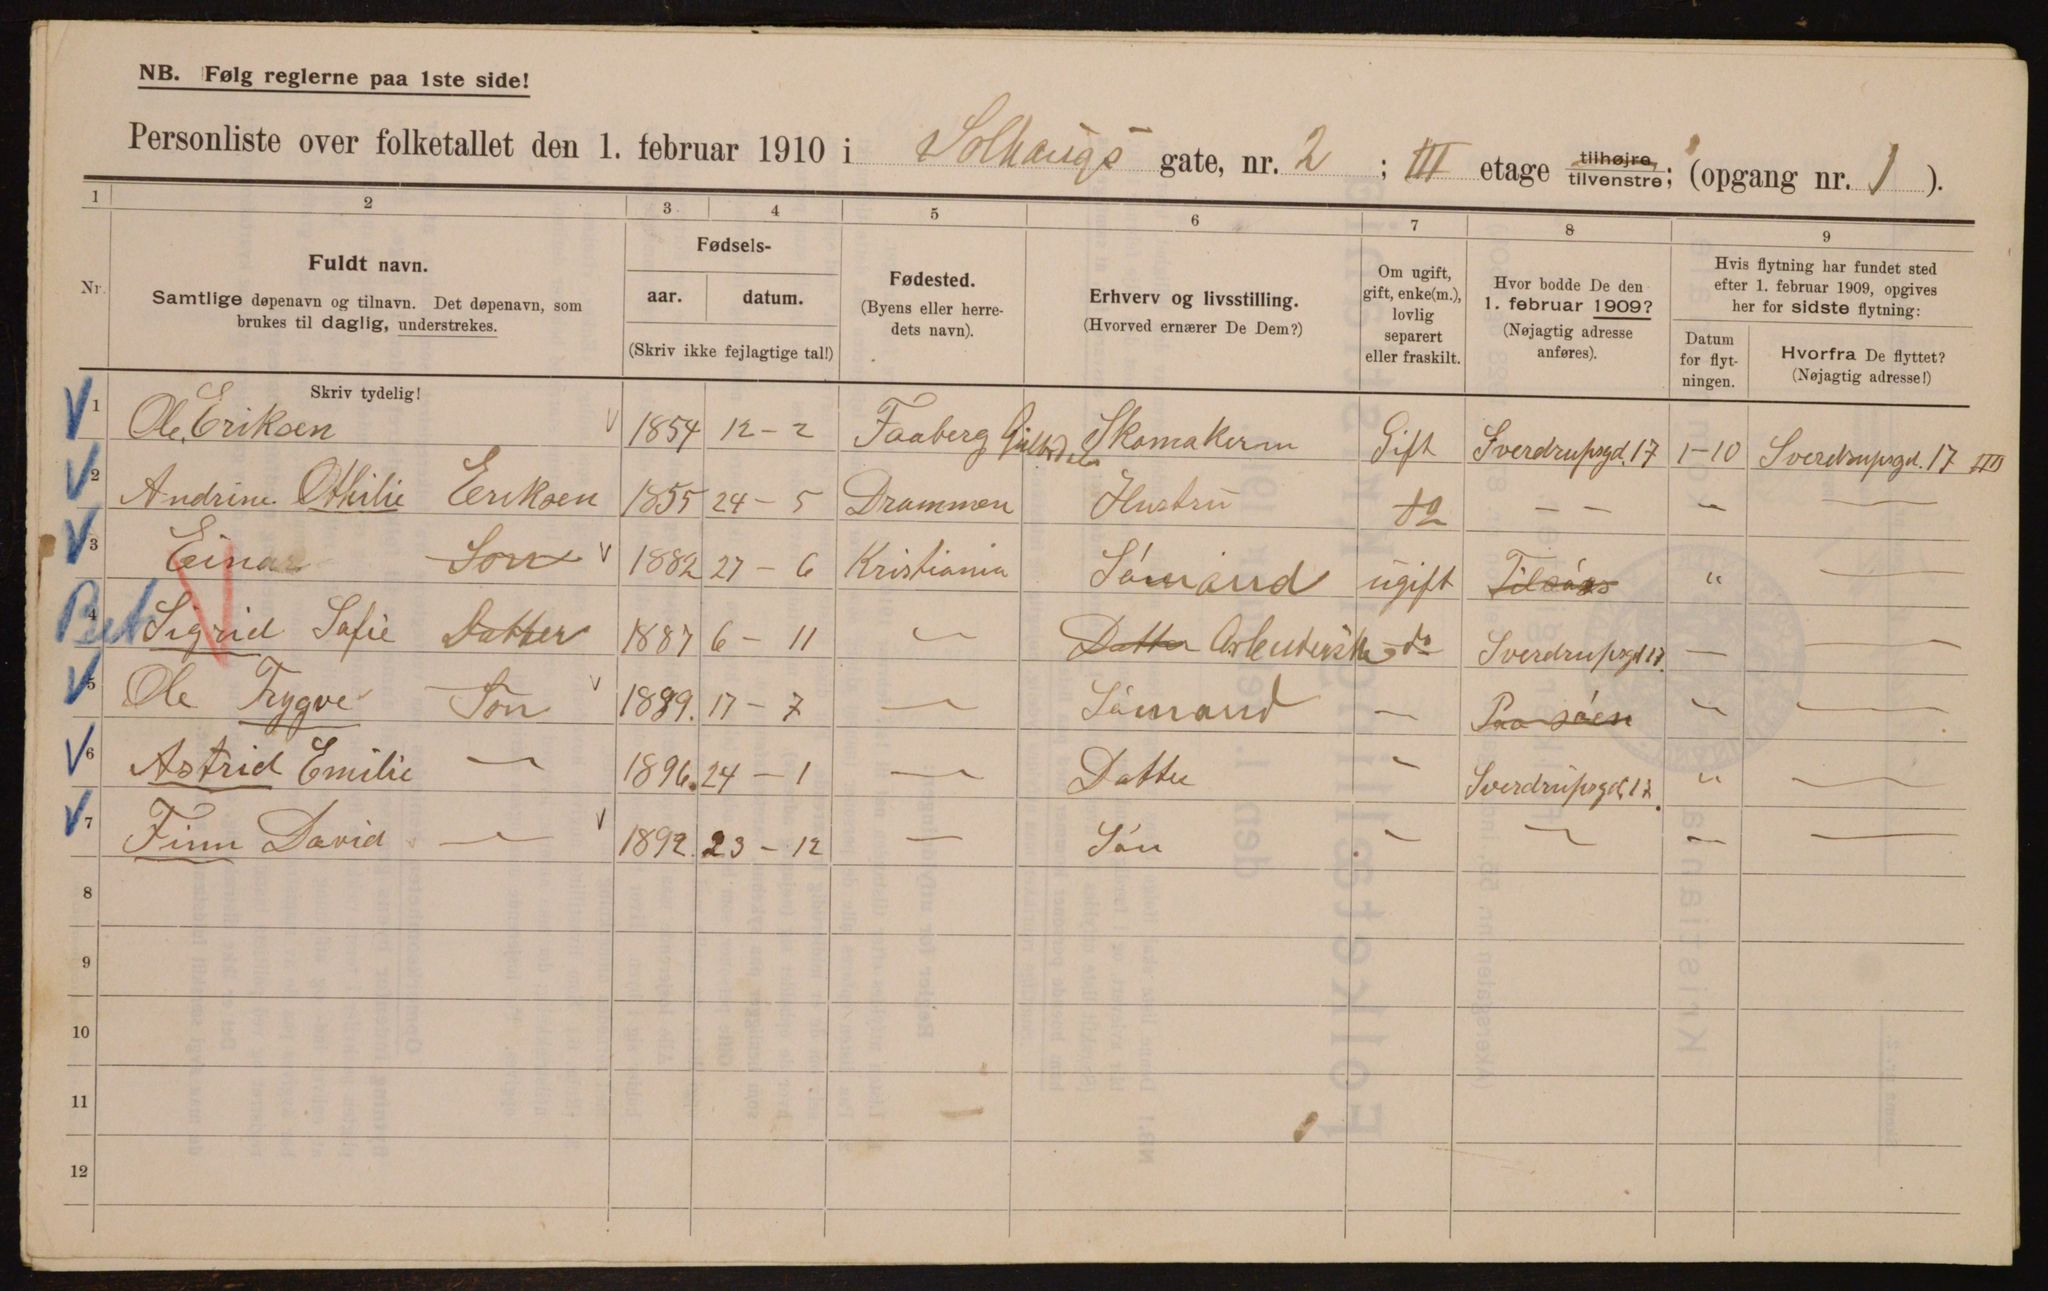 NB. Følg reglerne paa 1ste side!
Personliste over folketallet den 1. februar 1910 i Solhaugs gate, nr. 2 ; III etage tilhøjre/tilvenstre; (opgang nr. 1 ).
1 2 3 4 5 6 7 8 9
Nr. Fuldt navn. Samtlige døpenavn og tilnavn. Det døpenavn, som brukes til daglig, understrekes. Skriv tydelig!
Fødsels- aar. datum. (Skriv ikke fejlagtige tal!)
Fødested. (Byens eller herredets navn).
Erhverv og livsstilling. (Hvorved ernærer De Dem?)
Om ugift, gift, enke(m.), lovlig separert eller fraskilt.
Hvor bodde De den 1. februar 1909? (Nøjagtig adresse anføres).
Hvis flytning har fundet sted efter 1. februar 1909, opgives her for sidste flytning:
Datum for flytningen. Hvorfra De flyttet? (Nøjagtig adresse!)
1 Ole Eriksen 1854 12 – 2 Faaberg Skomakerm Gift Sverdrupsgd. 17 1–10 Sverdrupsgd. 17 III
2 Andrine Othilie Eriksen 1855 24 – 5 Drammen Hustru – –
3 Einar Son 1882 27 – 6 Kristiania Sömand ugift Tilsöes "
4 Sigrid Sofie Datter 1887 6 – 11 — Datter do Sverdrupsgd 17. — —
5 Ole Trygve Son 1889. 17 – 7 — Sömand — Paa söen " —
6 Astrid Emilie — 1896. 24 – 1 — Datter " Sverdrupsgd. 17. " —
7 Finn David — 1892. 23 – 12 — Sön — — — —
8
9
10
11
12